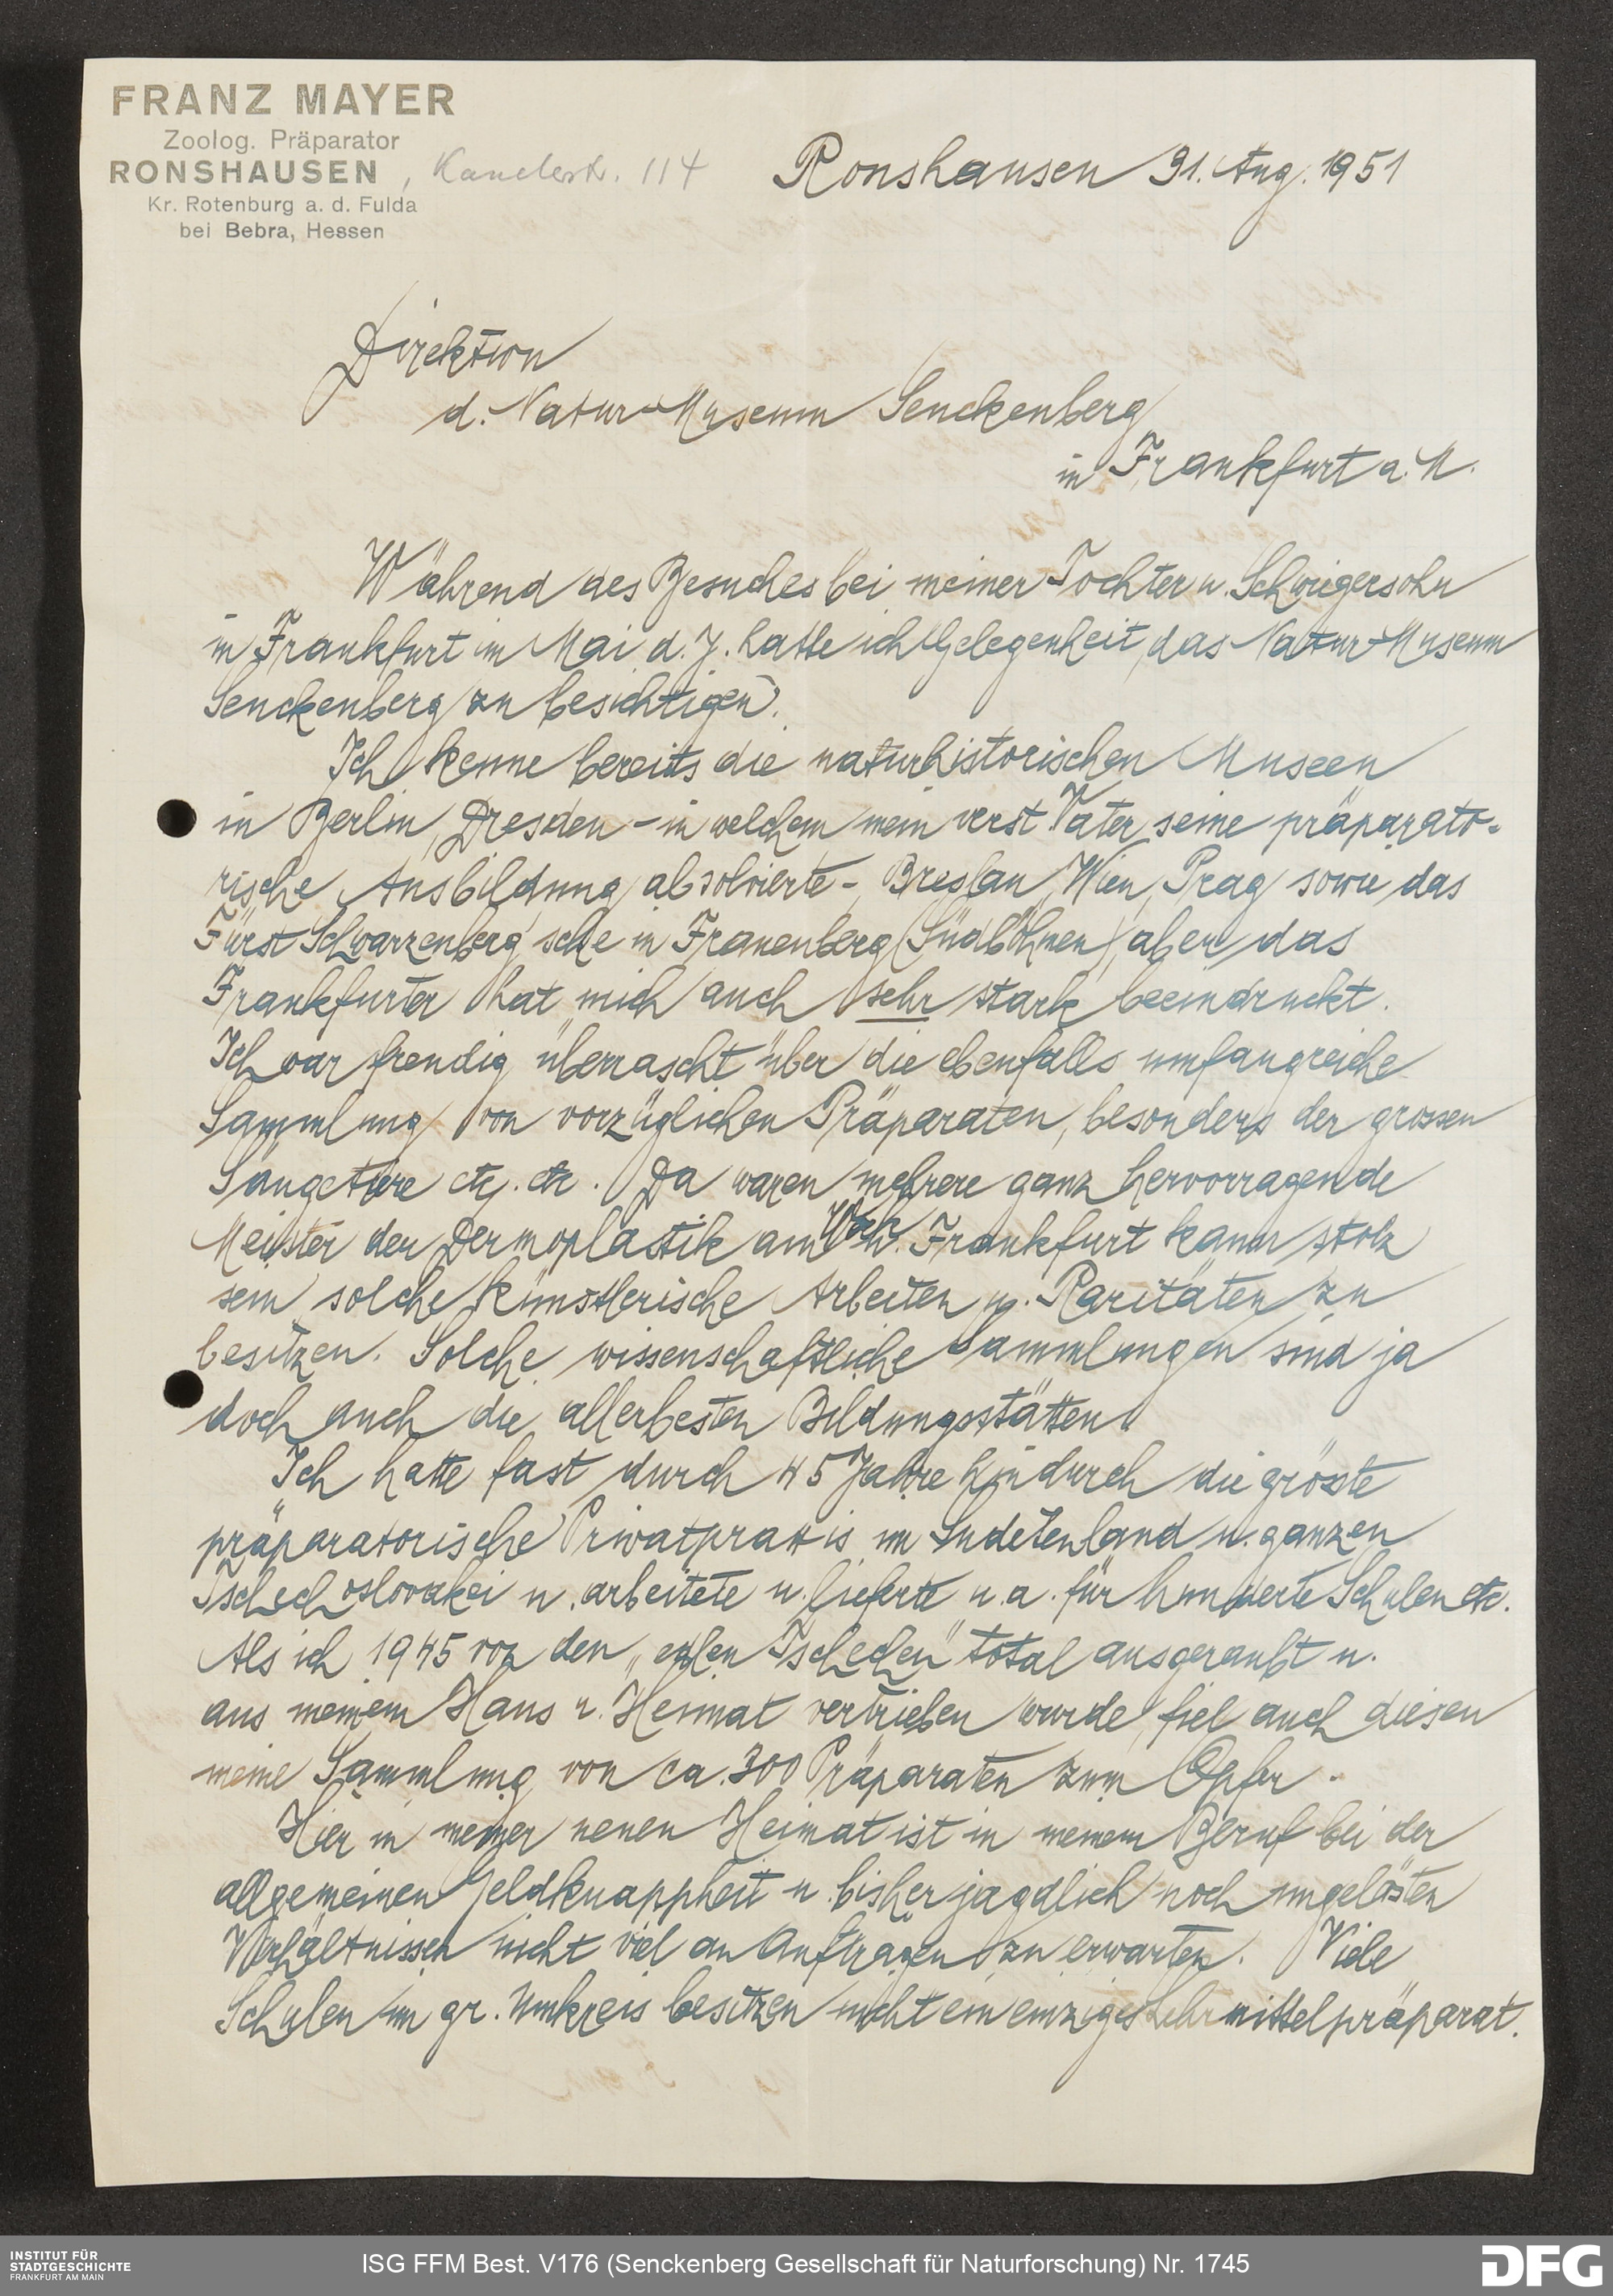 FRANZ MAYER
Zoolog. Präparator
RONSHAUSEN, 114
Kr. Rotenburg a. d. Fulda
bei Bebra, Hessen
Ronshausen 31. Aug. 1951
Direktion
d. Natur-Museum Senckenberg
in Frankfurt a. M.
Während des Besuches bei meiner Tochter u. Schwiegersohn
in Frankfurt im Mai d. J. hatte ich Gelegenheit, das Natur-Museum
Senckenberg zu besichtigen.
Ich kenne bereits die naturhistorischen Museen
in Berlin, Dresden - in welchem mein verst. Vater seine präparato-
rische Ausbildung absolvierte - Breslau, Wien, Prag sowie das
Fürst Schwarzenberg'sche in Frauenberg (Südböhmen), aber das
Frankfurter hat mich auch sehr stark beeindruckt.
Ich war freudig überrascht über die ebenfalls umfangreiche
Sammlung von vorzüglichen Präparaten, besonders der grossen
Säugetiere etz. etc. Da waren mehrere ganz hervorragende
Meister der Dermoplastik am Werk u. Frankfurt kann stolz
sein solche künstlerische Arbeiten u. Raritäten zu
besitzen. Solche wissenschaftliche Sammlungen sind ja
doch auch die allerbesten Bildungsstätten.
Ich hatte fast durch 45 Jahre hindurch die grösste
präparatorische Privatpraxis im Sudetenland u. ganzen
Tschechoslovakei u. arbeitete u. lieferte u. a. für hunderte Schulen etc.
Als ich 1945 von den „edlen Tschechen" total ausgeraubt u.
aus meinem Haus u. Heimat vertrieben wurde, fiel auch diesen
meine Sammlung von ca. 300 Präparaten zum Opfer.
Hier in meiner neuen Heimat ist in meinem Beruf bei der
allgemeinen Geldknappheit u. bisher jagdlich noch ungelösten
Verhältnissen nicht viel an Aufträgen zu erwarten. Viele
Schulen im gr. Umkreis besitzen nicht ein einziges Lehrmittelpräparat.
INSTITUT FÜR
STADTGESCHICHTE
FRANKFURT AM MAIN
ISG FFM Best. V176 (Senckenberg Gesellschaft für Naturforschung) Nr. 1745
DFG